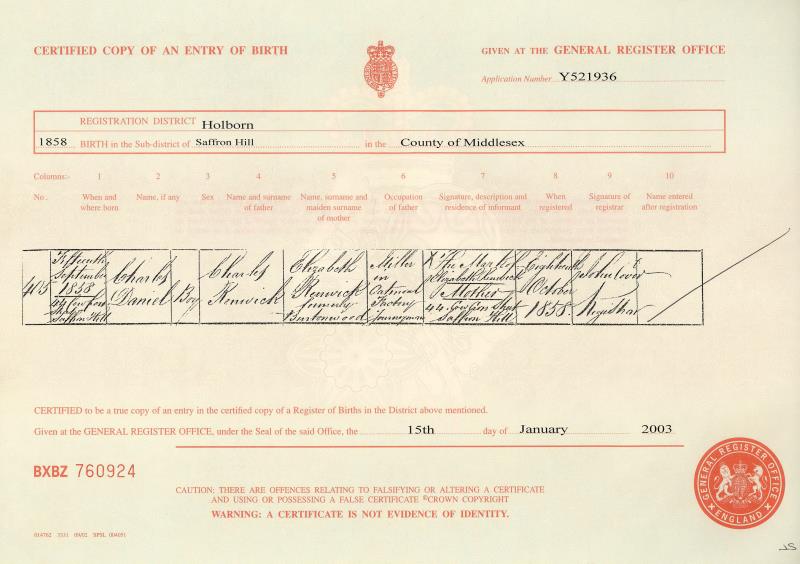 CERTIFIED COPY OF AN ENTRY OF BIRTH
GIVEN AT THE GENERAL REGISTER OFFICE
Application Number Y521936
REGISTRATION DISTRICT Holborn
1858 BIRTH in the Sub-district of Saffron Hill in the County of Middlesex
Columns:- 1 2 3 4 5 6 7 8 9 10
No. When and where born Name, if any Sex Name and surname of father Name, surname and maiden surname of mother Occupation of father Signature, description and residence of informant When registered Signature of registrar Name entered after registration
405
Fifteenth
September
1858
44
Saffron Hill
Charles
Daniel
Boy
Charles
Renwick
Elizabeth
Renwick
formerly
Burtonwood
Miller
in
Oatmeal
Factory
Journeyman
X The Mark of
Elizabeth Renwick
Mother
44 Street
Saffron Hill
Eighteenth
October
1858
John
Registrar
CERTIFIED to be a true copy of an entry in the certified copy of a Register of Births in the District above mentioned.
Given at the GENERAL REGISTER OFFICE, under the Seal of the said Office, the 15th day of January 2003
BXBZ 760924
CAUTION: THERE ARE OFFENCES RELATING TO FALSIFYING OR ALTERING A CERTIFICATE
AND USING OR POSSESSING A FALSE CERTIFICATE ©CROWN COPYRIGHT
WARNING: A CERTIFICATE IS NOT EVIDENCE OF IDENTITY.
GENERAL REGISTER OFFICE
ENGLAND